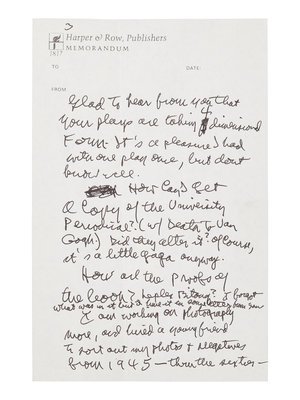 3
Harper & Row, Publishers
1817
MEMORANDUM
TO DATE:
FROM
Glad to hear from you & that
your plays are taking dimensional
Form. It's a pleasure I had
with one play once, but dont
know well.
How Can I Get
a Copy of the University
Periodical? (w/ Death to Van
Gogh.) Did they alter it? of course,
it's a little gaga anyway.
How are the proofs of
the book? I forget
what was in it
I am working on photography
more, and hired a young friend
to sort out my photos & negatives
from 1945 — thru the sixties —